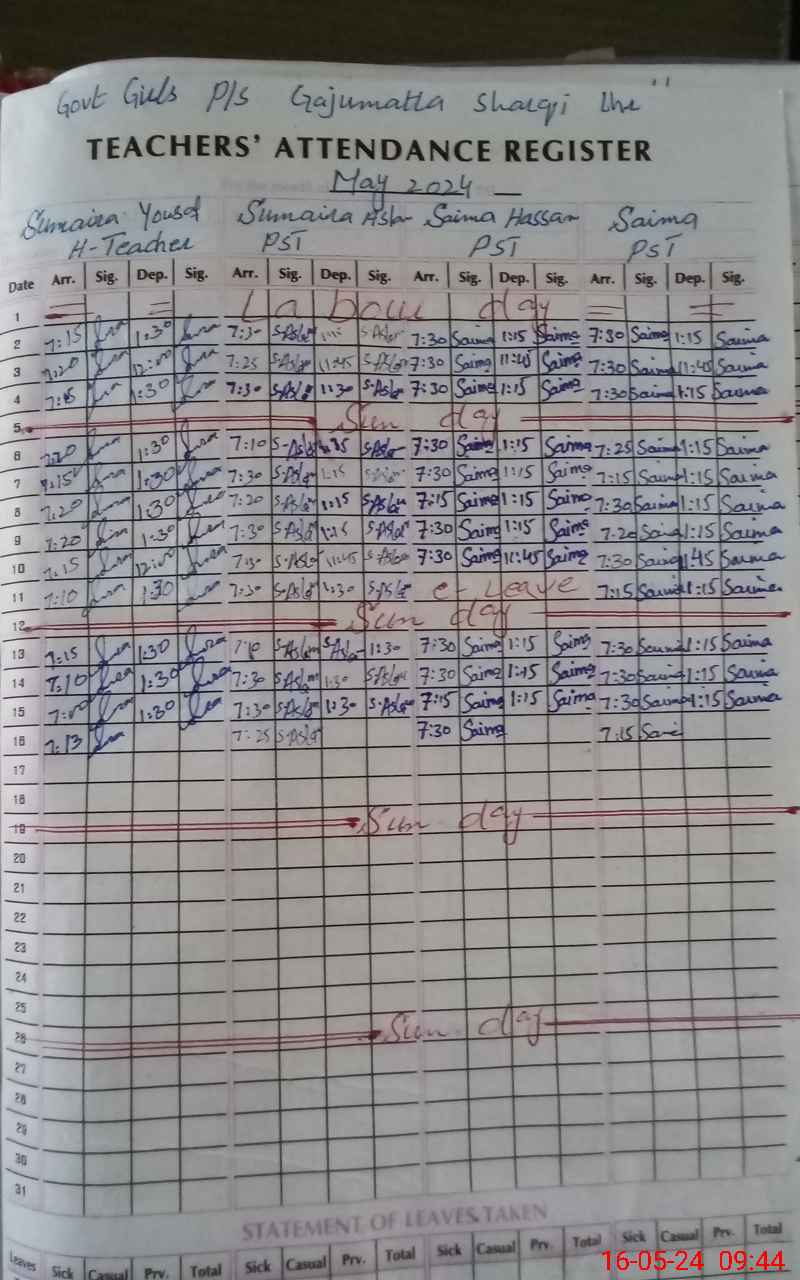 Govt Girls P/S Gajumatta Sharqi Lhr
TEACHERS' ATTENDANCE REGISTER
May 2024
Sumaira Yousaf Sumaira Aslam Saima Hassan Saima
H-Teacher PST PST PST
Date Arr. Sig. Dep. Sig. Arr. Sig. Dep. Sig. Arr. Sig. Dep. Sig. Arr. Sig. Dep. Sig.
1 = = Labour day =
2 7:15 1:30 7:30 S-Aslam S-Aslam 7:30 Saima 1:15 Saima 7:30 Saima 1:15 Saima
3 7:20 12:00 7:25 S-Aslam 11:45 S-Aslam 7:30 Saima 11:45 Saima 7:30 Saima 11:45 Saima
4 7:15 1:30 7:30 S-Aslam 1:30 S-Aslam 7:30 Saima 1:15 Saima 7:30 Saima 1:15 Saima
5 Sun day
6 7:20 1:30 7:10 S-Aslam S-Aslam 7:30 Saima 1:15 Saima 7:25 Saima 1:15 Saima
7 7:15 1:30 7:30 S-Aslam 1:15 7:30 Saima 1:15 Saima 7:15 Saima 1:15 Saima
8 7:20 1:30 7:20 S-Aslam 1:15 S-Aslam 7:15 Saima 1:15 Saima 7:30 Saima 1:15 Saima
9 7:20 1:30 7:30 S-Aslam 1:15 S-Aslam 7:30 Saima 1:15 Saima 7:20 Saima 1:15 Saima
10 7:15 12:00 7:30 S-Aslam 11:45 S-Aslam 7:30 Saima 11:45 Saima 7:30 Saima 11:45 Saima
11 7:10 1:30 7:30 S-Aslam 1:30 S-Aslam c-Leave 7:15 Saima 1:15 Saima
12 Sun day
13 7:15 1:30 7:10 S-Aslam S-Aslam 1:30 7:30 Saima 1:15 Saima 7:30 Saima 1:15 Saima
14 7:10 1:30 7:30 S-Aslam 1:30 S-Aslam 7:30 Saima 1:15 Saima 7:30 Saima 1:15 Saima
15 7:00 1:30 7:30 S-Aslam 1:30 S-Aslam 7:15 Saima 1:15 Saima 7:30 Saima 1:15 Saima
16 7:13 7:25 S-Aslam 7:30 Saima 7:15 Saima
17
18
19 Sun day
20
21
22
23
24
25
26 Sun day
27
28
29
30
31
STATEMENT OF LEAVES TAKEN
Leaves Sick Casual Prv. Total Sick Casual Prv. Total Sick Casual Prv. Total Sick Casual Prv. Total
16-05-24 09:44